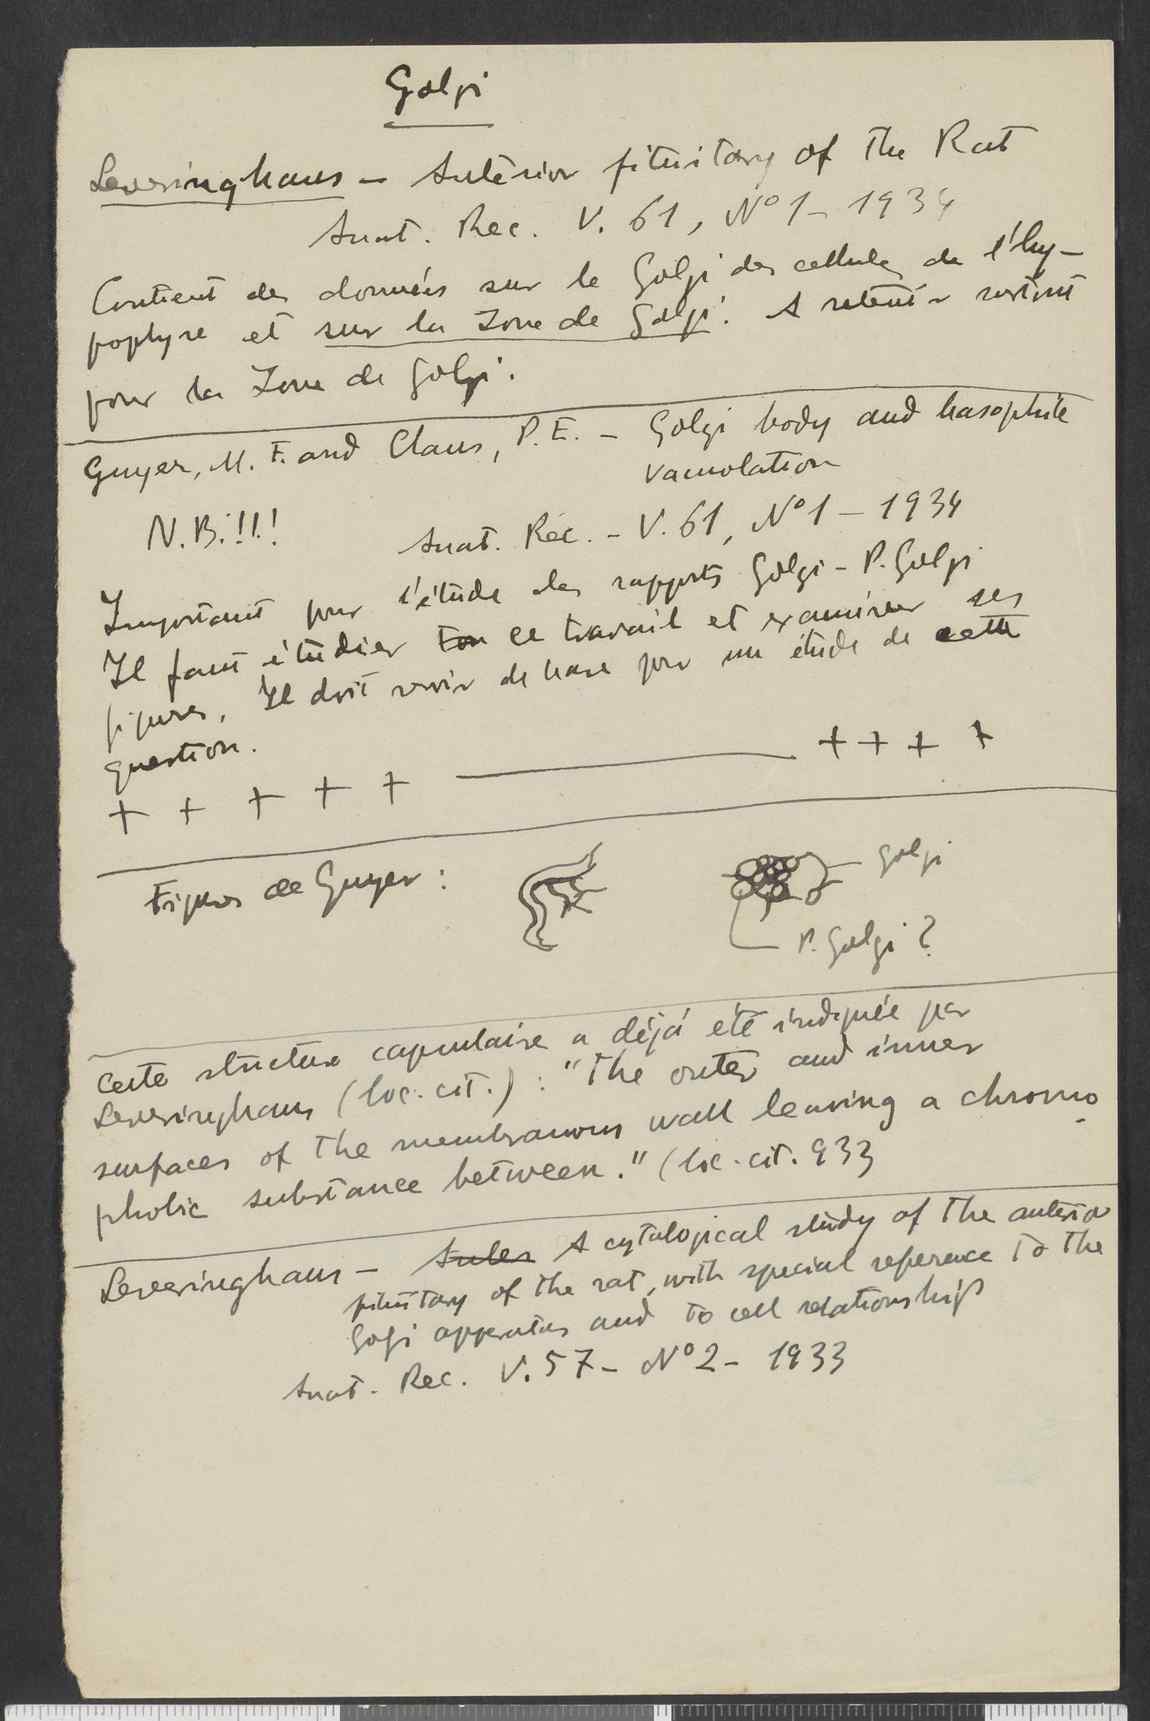 Golgi
Severinghaus - Anterior pituitary of the Rat
Anat. Rec. V. 61, No 1 - 1934
Contient des données sur le Golgi des cellules de l'hy-
pophyse et sur la Zone de Golgi. A retenir surtout
pour la Zone de Golgi.
Guyer, M. F. and Claus, P. E. - Golgi body and basophile
vacuolation
N.B.!!!
Anat. Rec. - V. 61, No 1 - 1934
Important pour l'étude des rapports Golgi - P. Golgi
Il faut étudier ton ce travail et examiner ses
figures. Il doit servir de base pour une étude de cette
question.
+ + + + + ——— + + + +
Figures de Guyer:
Golgi
P. Golgi ?
Cette structure capsulaire a déjà été indiquée par
Severinghaus (loc. cit.) : "The outer and inner
surfaces of the membranous wall leaving a chromo-
phobic substance between." (loc. cit. 933
Severinghaus - A cytological study of the anterior
pituitary of the rat, with special reference to the
Golgi apparatus and to cell relationships
Anat. Rec. V. 57 - No 2 - 1933